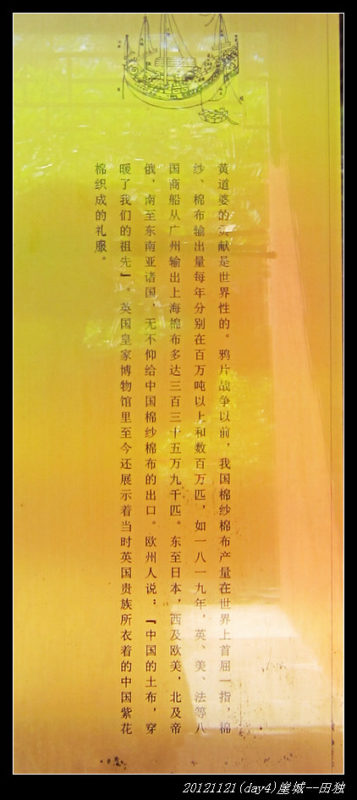 黄道婆的贡献是世界性的。鸦片战争以前，我国棉纱棉布产量在世界上首屈一指，棉
纱、棉布输出量每年分别在百万吨以上和数百万匹，如一八一九年，英、美、法等八
国商船从广州输出上海棉布多达三百三十五万九千匹。东至日本，西及欧美，北及帝
俄，南至东南亚诸国，无不仰给中国棉纱棉布的出口。欧州人说：「中国的土布，穿
暖了我们的祖先」。英国皇家博物馆里至今还展示着当时英国贵族所衣着的中国紫花
棉织成的礼服。
20121121(day4)崖城--田独